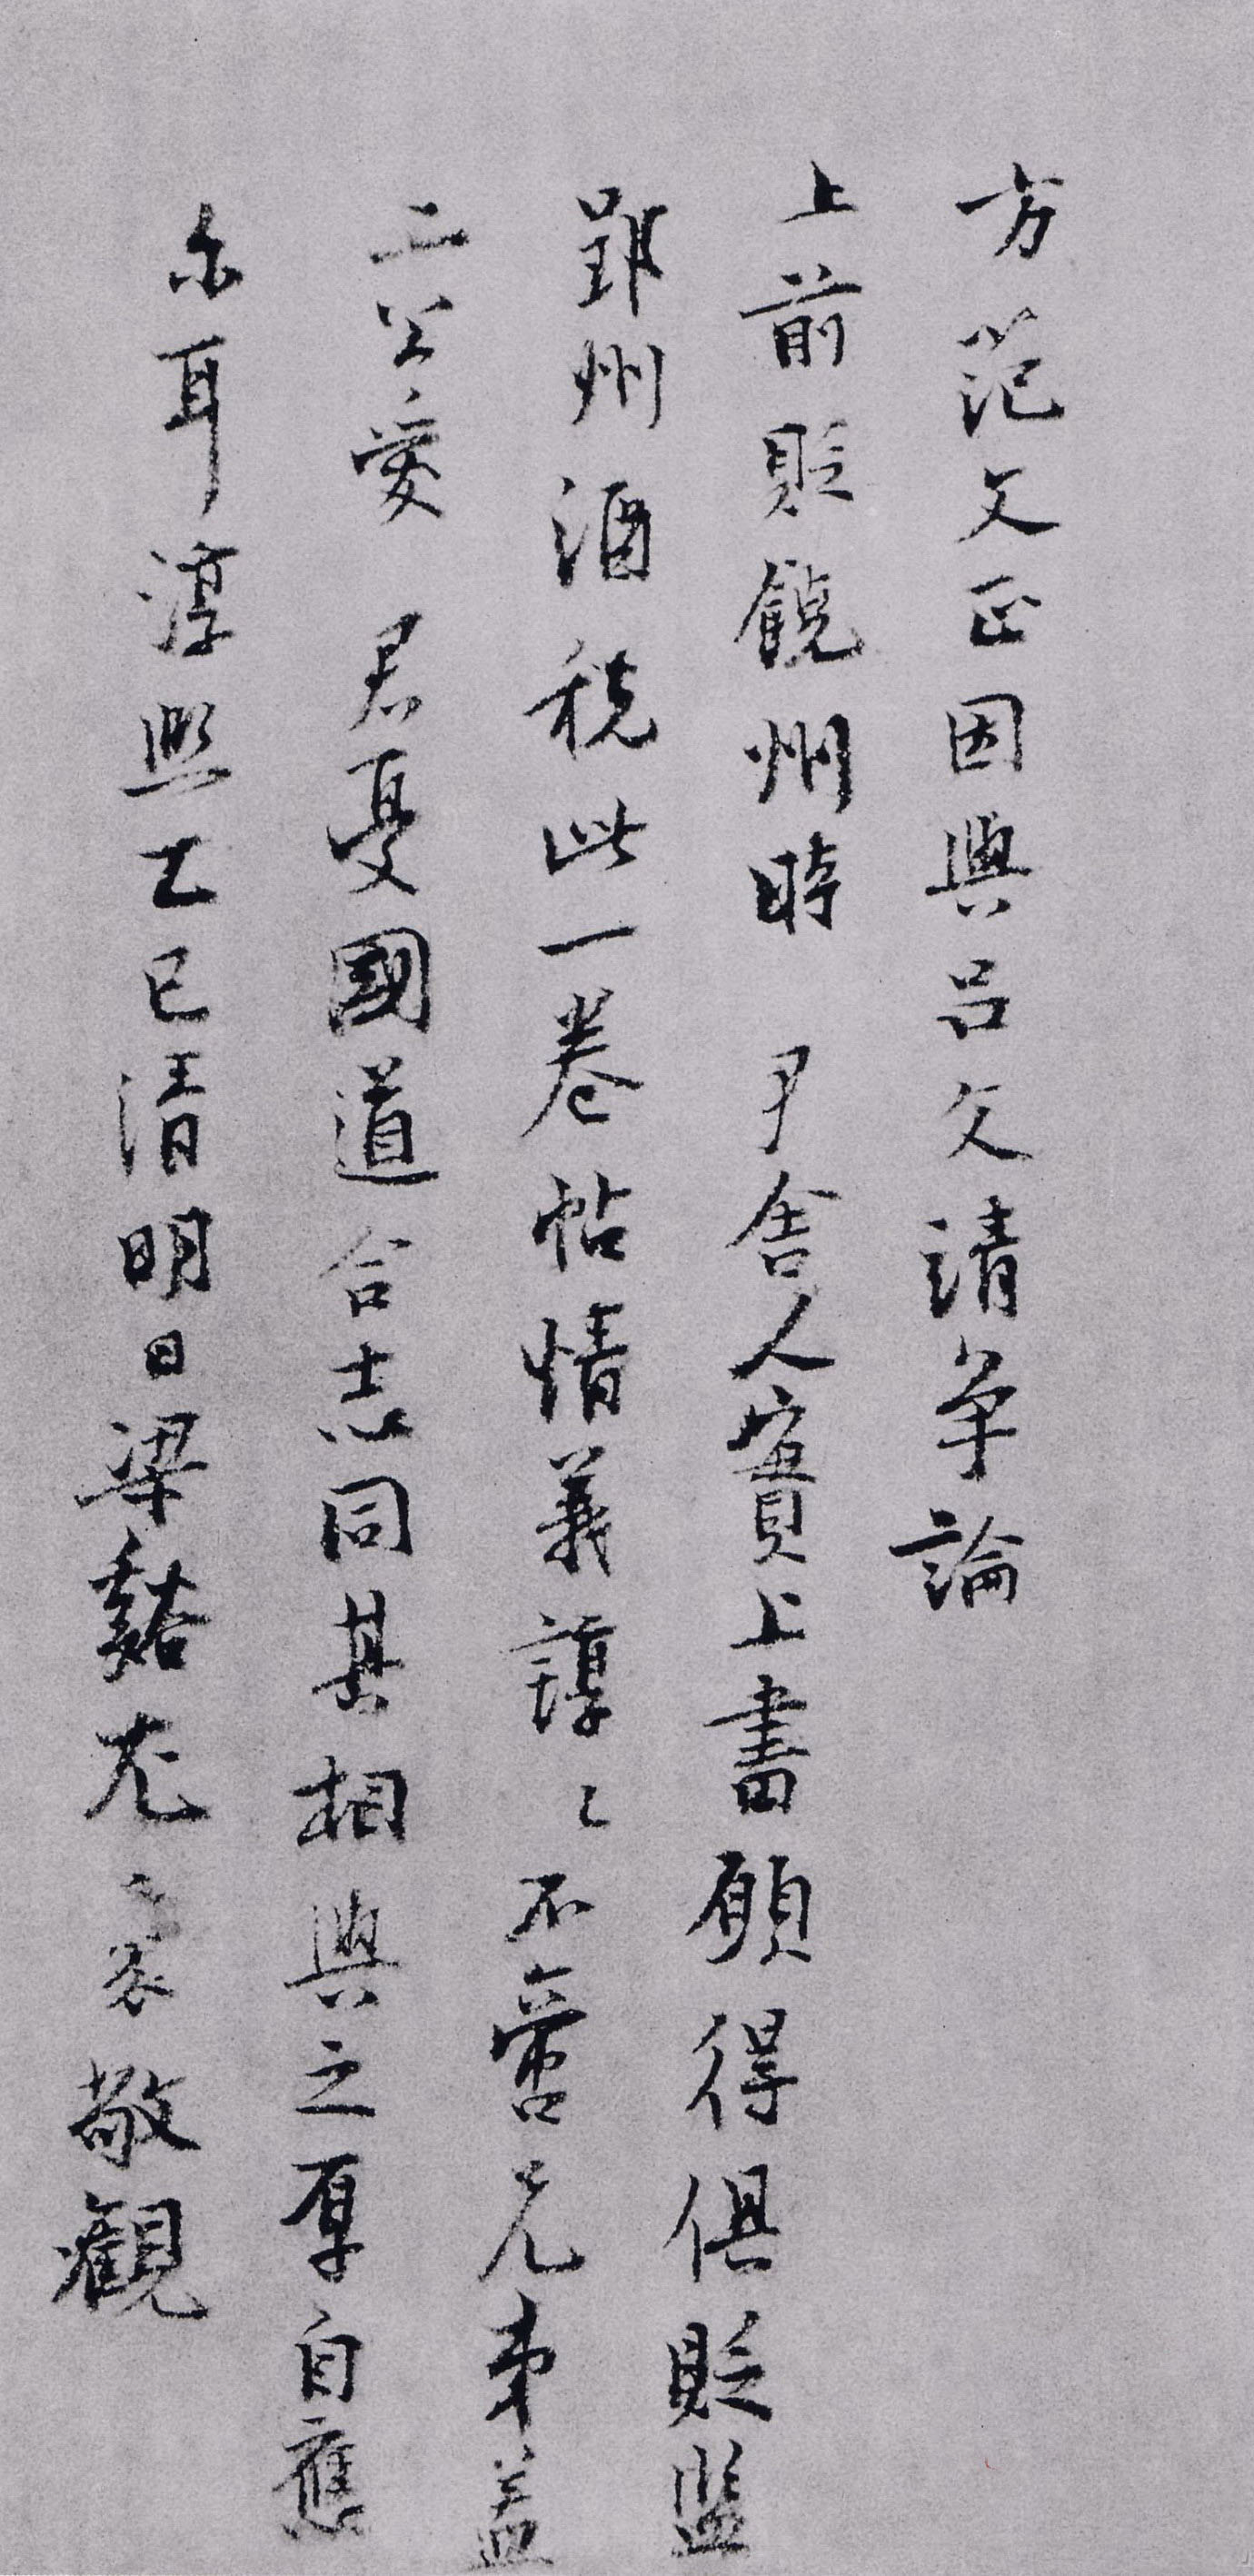 方范文正因與呂文靖爭論
上前貶饒州時尹舍人實上書願得俱貶監
郢州酒稅此一卷帖情義諄〻不啻兄弟蓋
二公愛君憂國道合志同其相與之厚自應
尔耳淳熙乙巳清明日梁谿尤袤敬觀